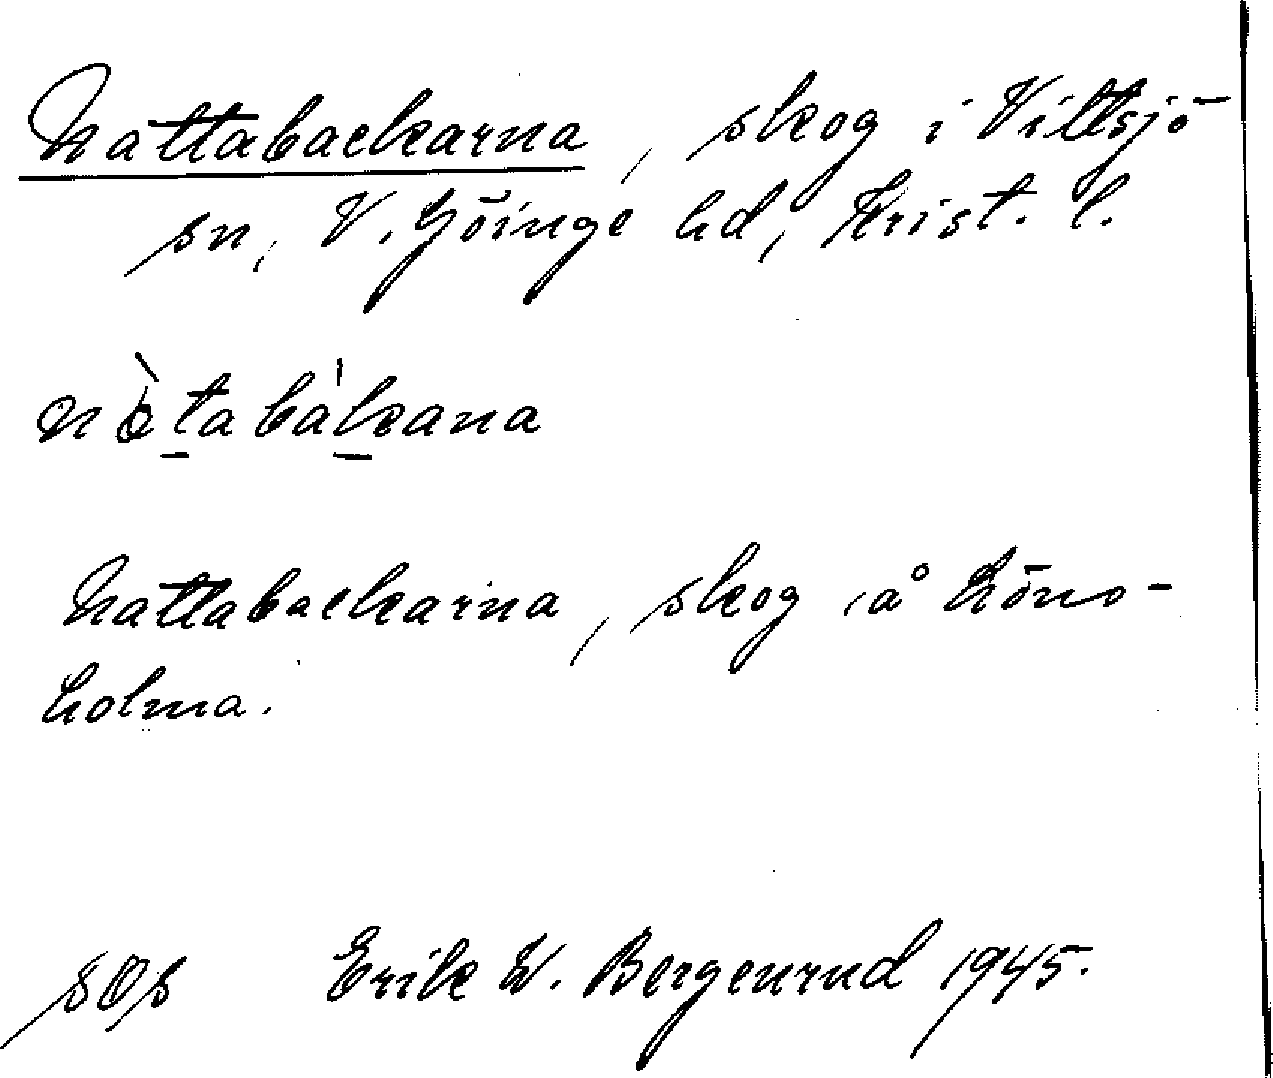 Nattabackarna, skog i Vittsjö
sn, V. Göinge hd, Krist. l.
nòtabàkana
Nattabackarna, skog å Höns-
holma.
sOs Erik W. Bergenrud 1945.